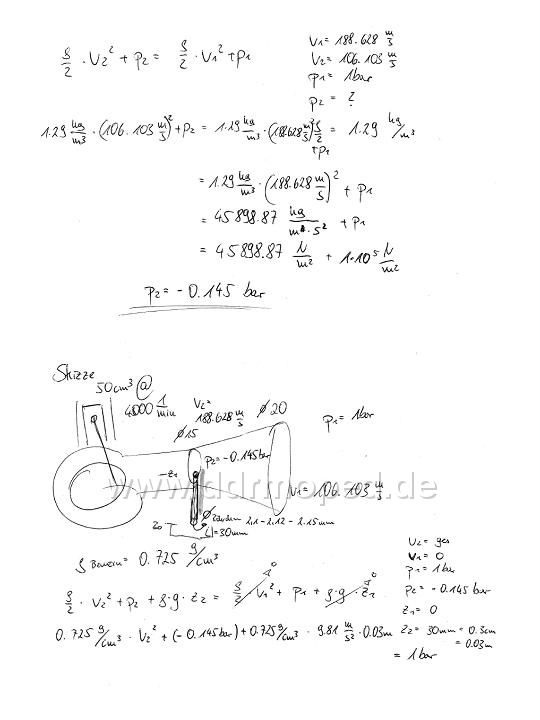 ρ/2 · v2² + p2 = ρ/2 · v1² + p1
v1 = 188.628 m/s
v2 = 106.103 m/s
p1 = 1bar
p2 = ?
1.29 kg/m³ · (106.103 m/s)² + p2 = 1.29 kg/m³ · (188.628 m/s)² + p1
ρ/2 = 1.29 kg/m³
= 1.29 kg/m³ · (188.628 m/s)² + p1
= 45898.87 kg/m·s² + p1
= 45898.87 N/m² + 1·10⁵ N/m²
p2 = - 0.145 bar
Skizze
50cm³ @
4000 1/min
v2 =
188.628 m/s
ø15
ø20
p1 = 1bar
p2 = -0.145bar
-z1
www.ddrmoped.de
v1 = 106.103 m/s
z0
2.1 - 2.12 - 2.15mm
L = 30mm
ρ = 0.725 g/cm³
v2 = ges
v1 = 0
p1 = 1bar
p2 = -0.145bar
z1 = 0
z2 = 30mm = 0.3cm
= 0.03m
ρ/2 · v2² + p2 + ρ·g·z2 = ρ/2 v1² + p1 + ρ·g·z1
0 0
0.725 g/cm³ · v2² + (-0.145bar) + 0.725 g/cm³ · 9.81 m/s² · 0.03m
= 1bar